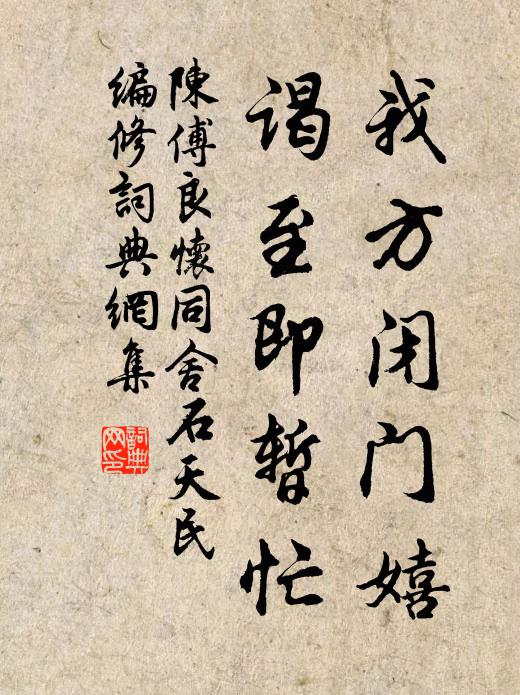 我方闭门嬉
谒至即暂忙
陳傅良懷同舍石天民
編修詞典網集
詞典
网印